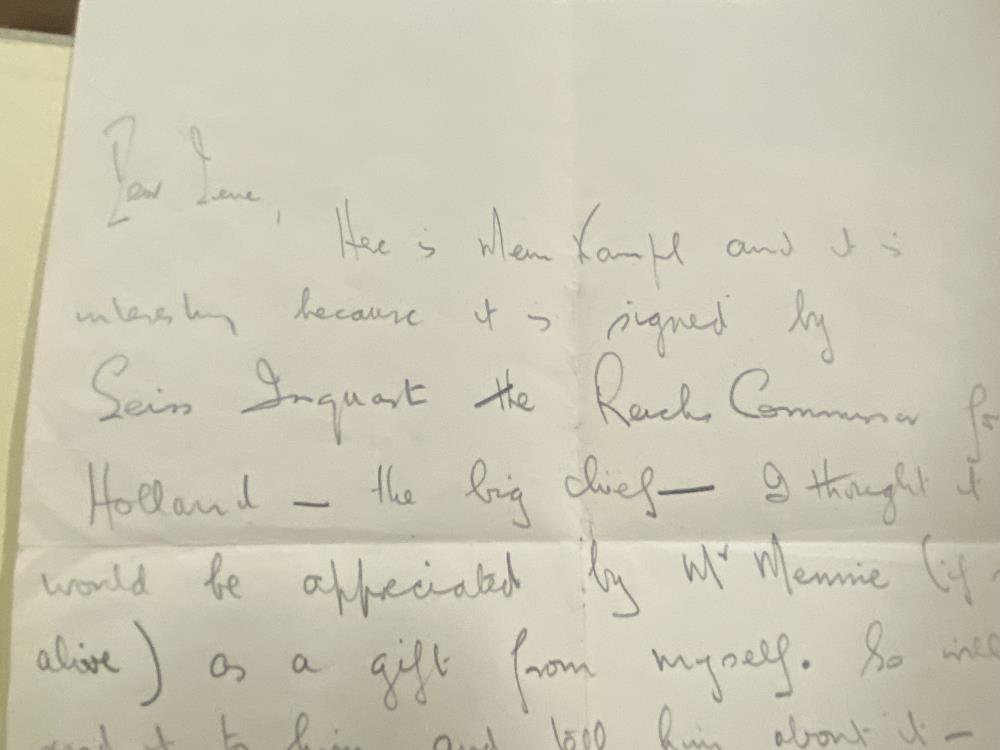 Dear Irene,
Here is Mein Kampf and it is
interesting because it is signed by
Seiss Inquart the Reichs Commissar for
Holland — the big chief — I thought it
would be appreciated by Mr Mennie (if
alive) as a gift from myself. So will
send it to him and tell him about it —